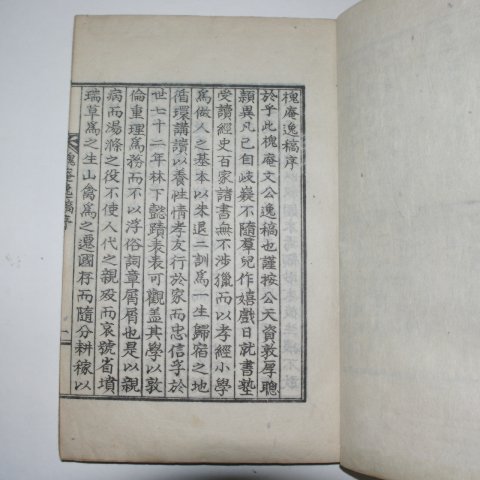 槐庵逸稿序
於乎此槐庵文公逸稿也謹按公天資敦厚聰
頴異凡已自岐嶷不隨羣兒作嬉戲日就書塾
受讀經史百家諸書無不涉獵而以孝經小學
爲做人之基本以朱退二訓爲一生歸宿之地
循環講讀以養性情孝友行於家而忠信孚於
世七十二年林下懿蹟表表可觀盖其學以敦
倫重理爲務而不以浮俗詞章屑屑也是以親
病而湯滌之役不使人代之親歿而哀號省墳
瑞草爲之生山禽爲之遷國存而隨分耕稼以
槐庵逸稿序
一